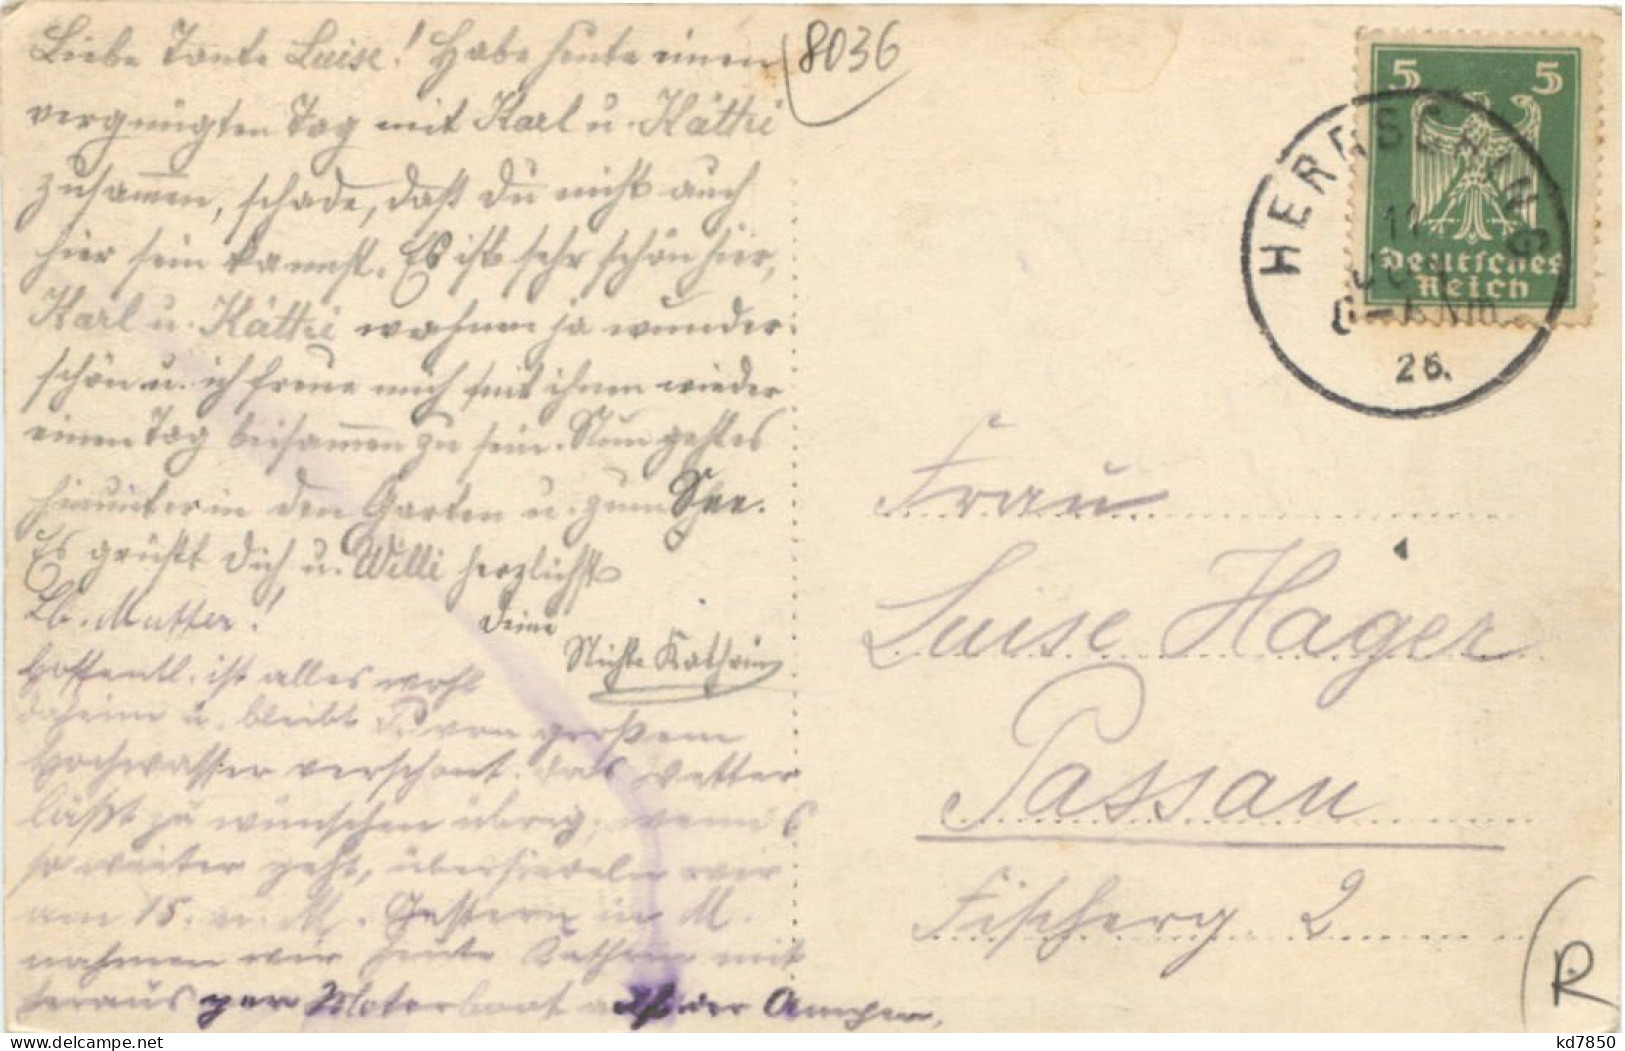 Liebe Tante Luise! Habe heute einen
vergnügten Tag mit Karl u. Kätti
zusammen, schade, daß Du nicht auch
hier sein kannst. Es ist sehr schön hier,
Karl u. Kätti wohnen ja wunder-
schön u. ich freue mich mit ihnen wieder
einen Tag beisammen zu sein. Nun geht es
hinunter in den Garten u. zum See.
Es grüßt Dich u. Willi herzlichst
Deine
Nichte Kathrin
Lb. Mutter!
Hoffentl. ist alles wohl
daheim u. bleibt P. von großem
Hochwasser verschont. Das Wetter
läßt zu wünschen übrig, wenn's
so weiter geht, übersiedeln wir
am 15. n. M. Gestern in M.
nahmen wir heute Kathrin mit
heraus per Motorboot auf der Ammer.
8036
5 5
Deutsches
Reich
HERRSCHING
11
26.
Frau
Luise Hager
Passau
Fischerg 2
R
kd7850